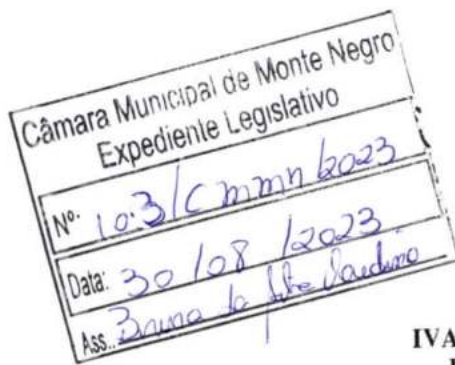 Câmara Municipal de Monte Negro
Expediente Legislativo
Nº. 103/Cmmn/2023
Data: 30/08/2023
Ass.: Bruna da
IVA